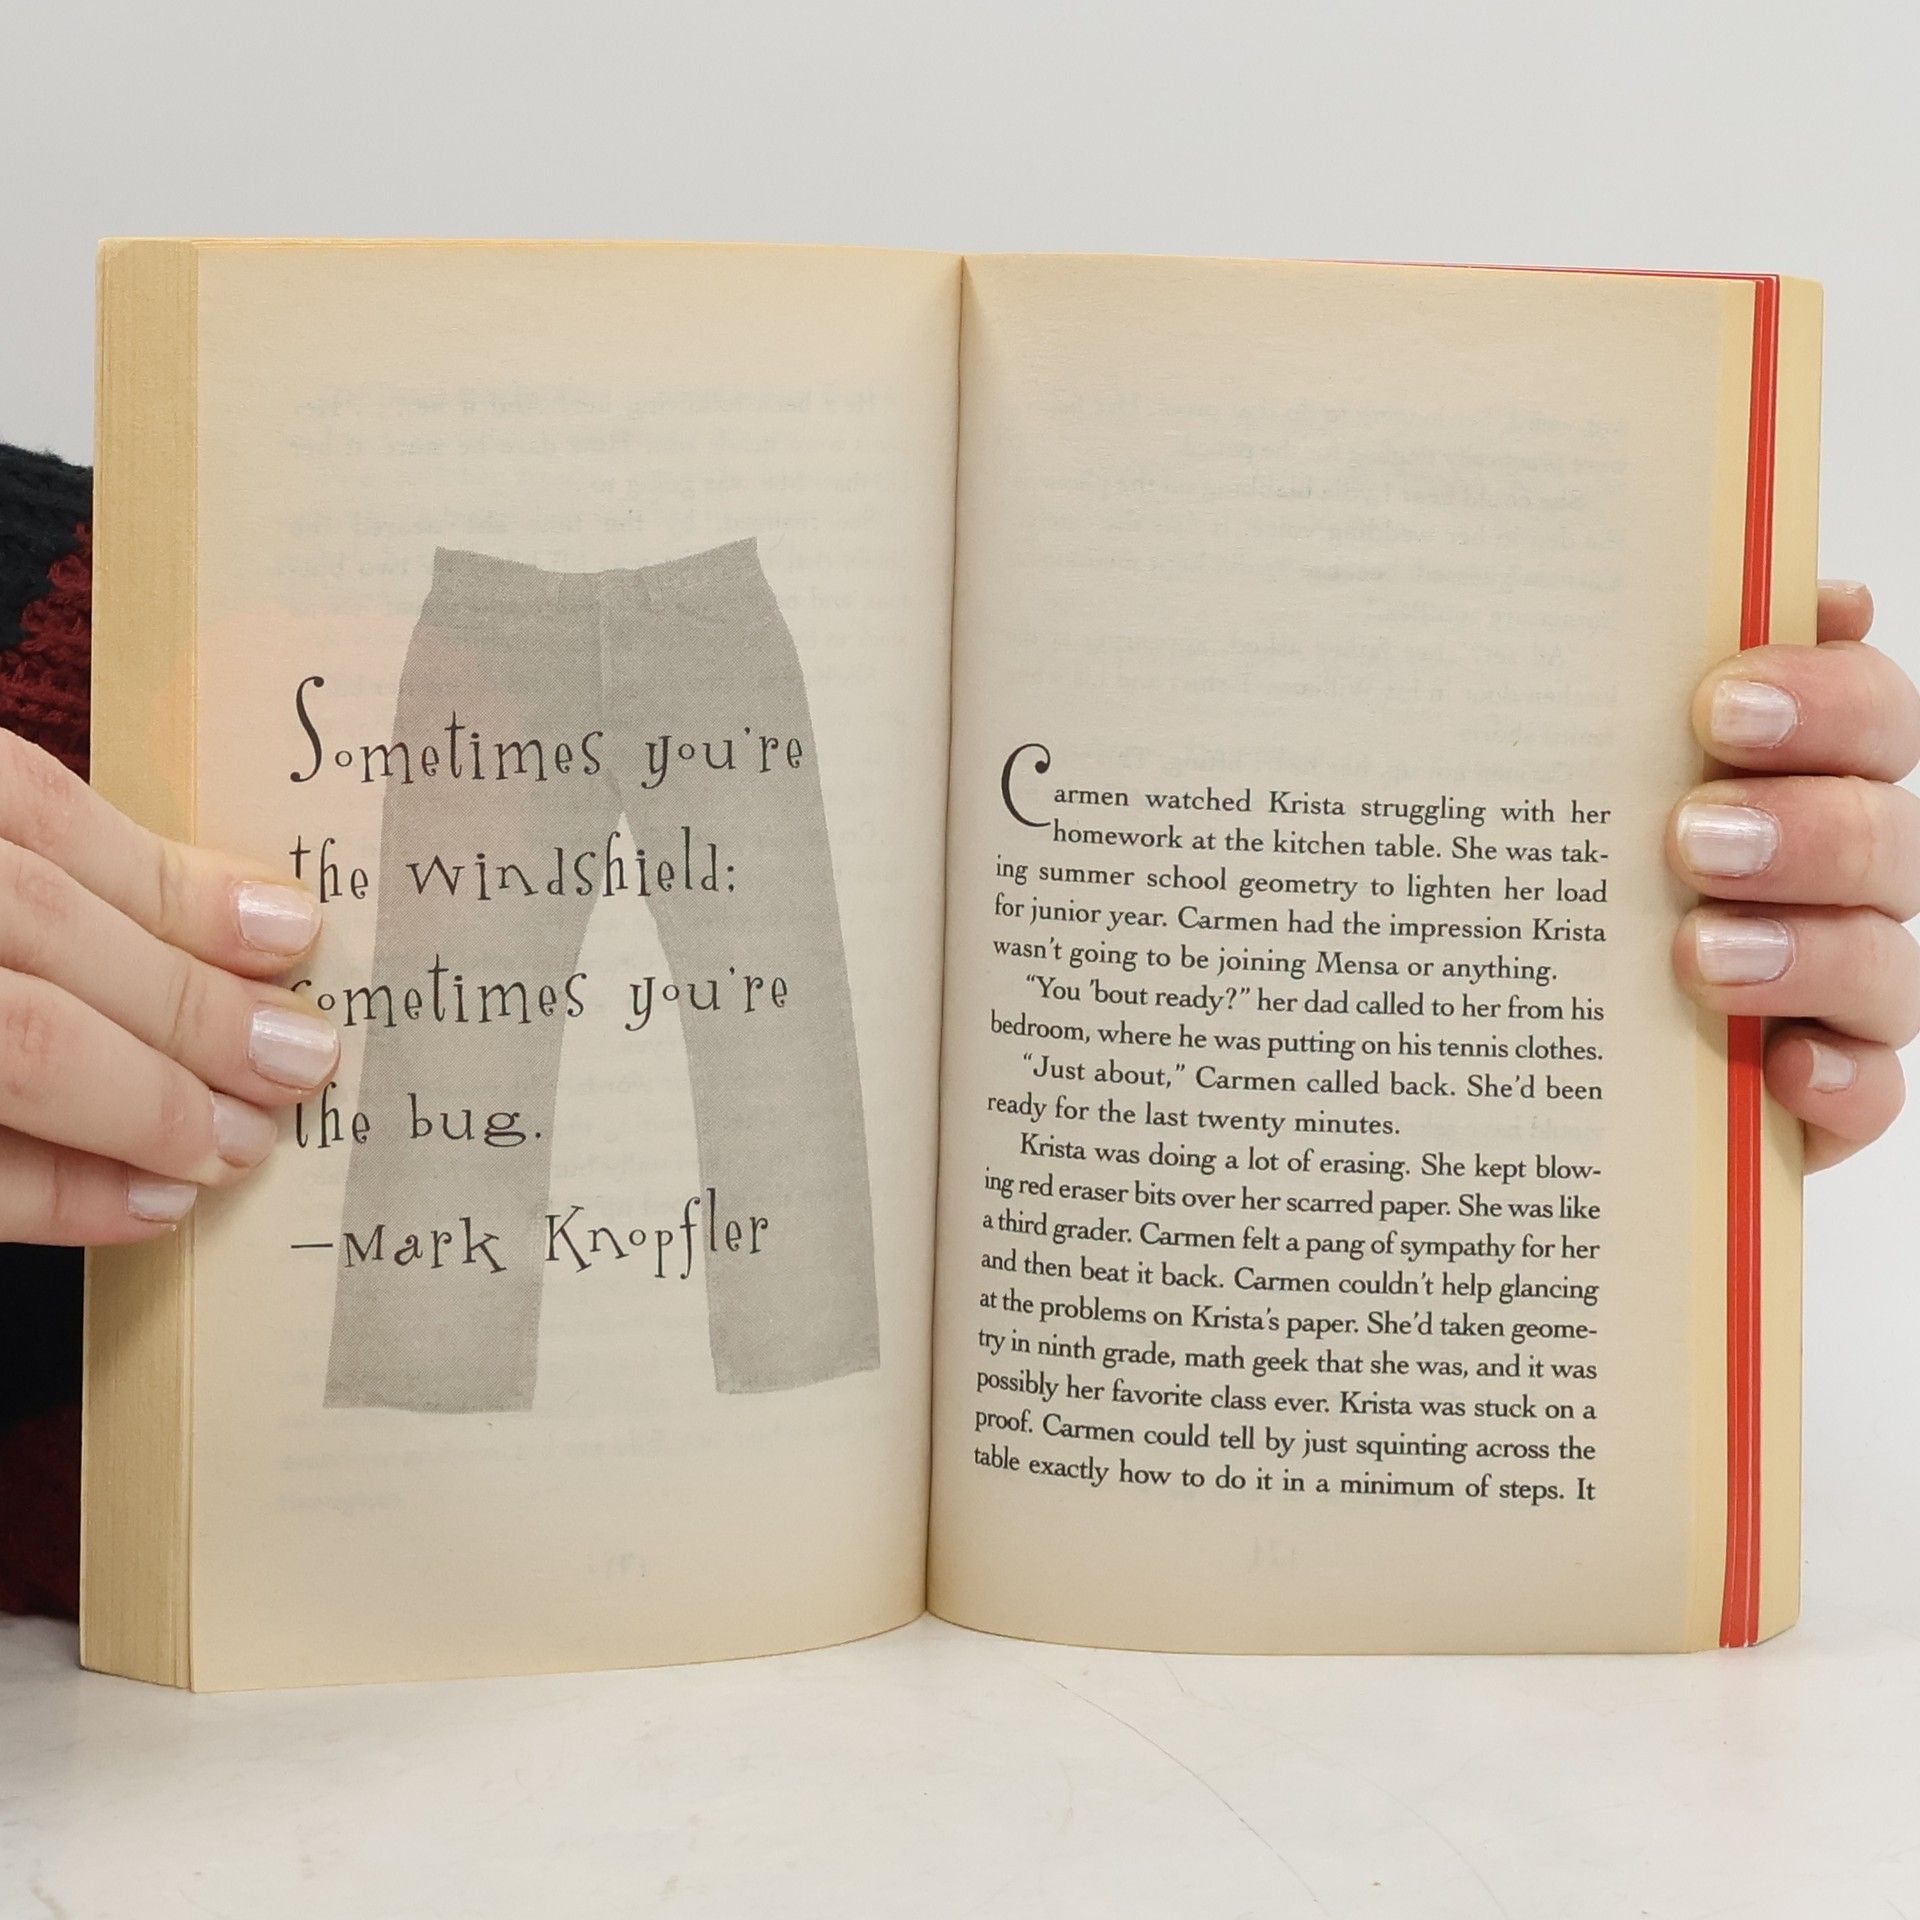 Sometimes you're
the windshield:
sometimes you're
the bug.
—Mark Knopfler
Carmen watched Krista struggling with her
homework at the kitchen table. She was tak-
ing summer school geometry to lighten her load
for junior year. Carmen had the impression Krista
wasn't going to be joining Mensa or anything.
“You ’bout ready?” her dad called to her from his
bedroom, where he was putting on his tennis clothes.
“Just about,” Carmen called back. She’d been
ready for the last twenty minutes.
Krista was doing a lot of erasing. She kept blow-
ing red eraser bits over her scarred paper. She was like
a third grader. Carmen felt a pang of sympathy for her
and then beat it back. Carmen couldn’t help glancing
at the problems on Krista’s paper. She’d taken geome-
try in ninth grade, math geek that she was, and it was
possibly her favorite class ever. Krista was stuck on a
proof. Carmen could tell by just squinting across the
table exactly how to do it in a minimum of steps. It